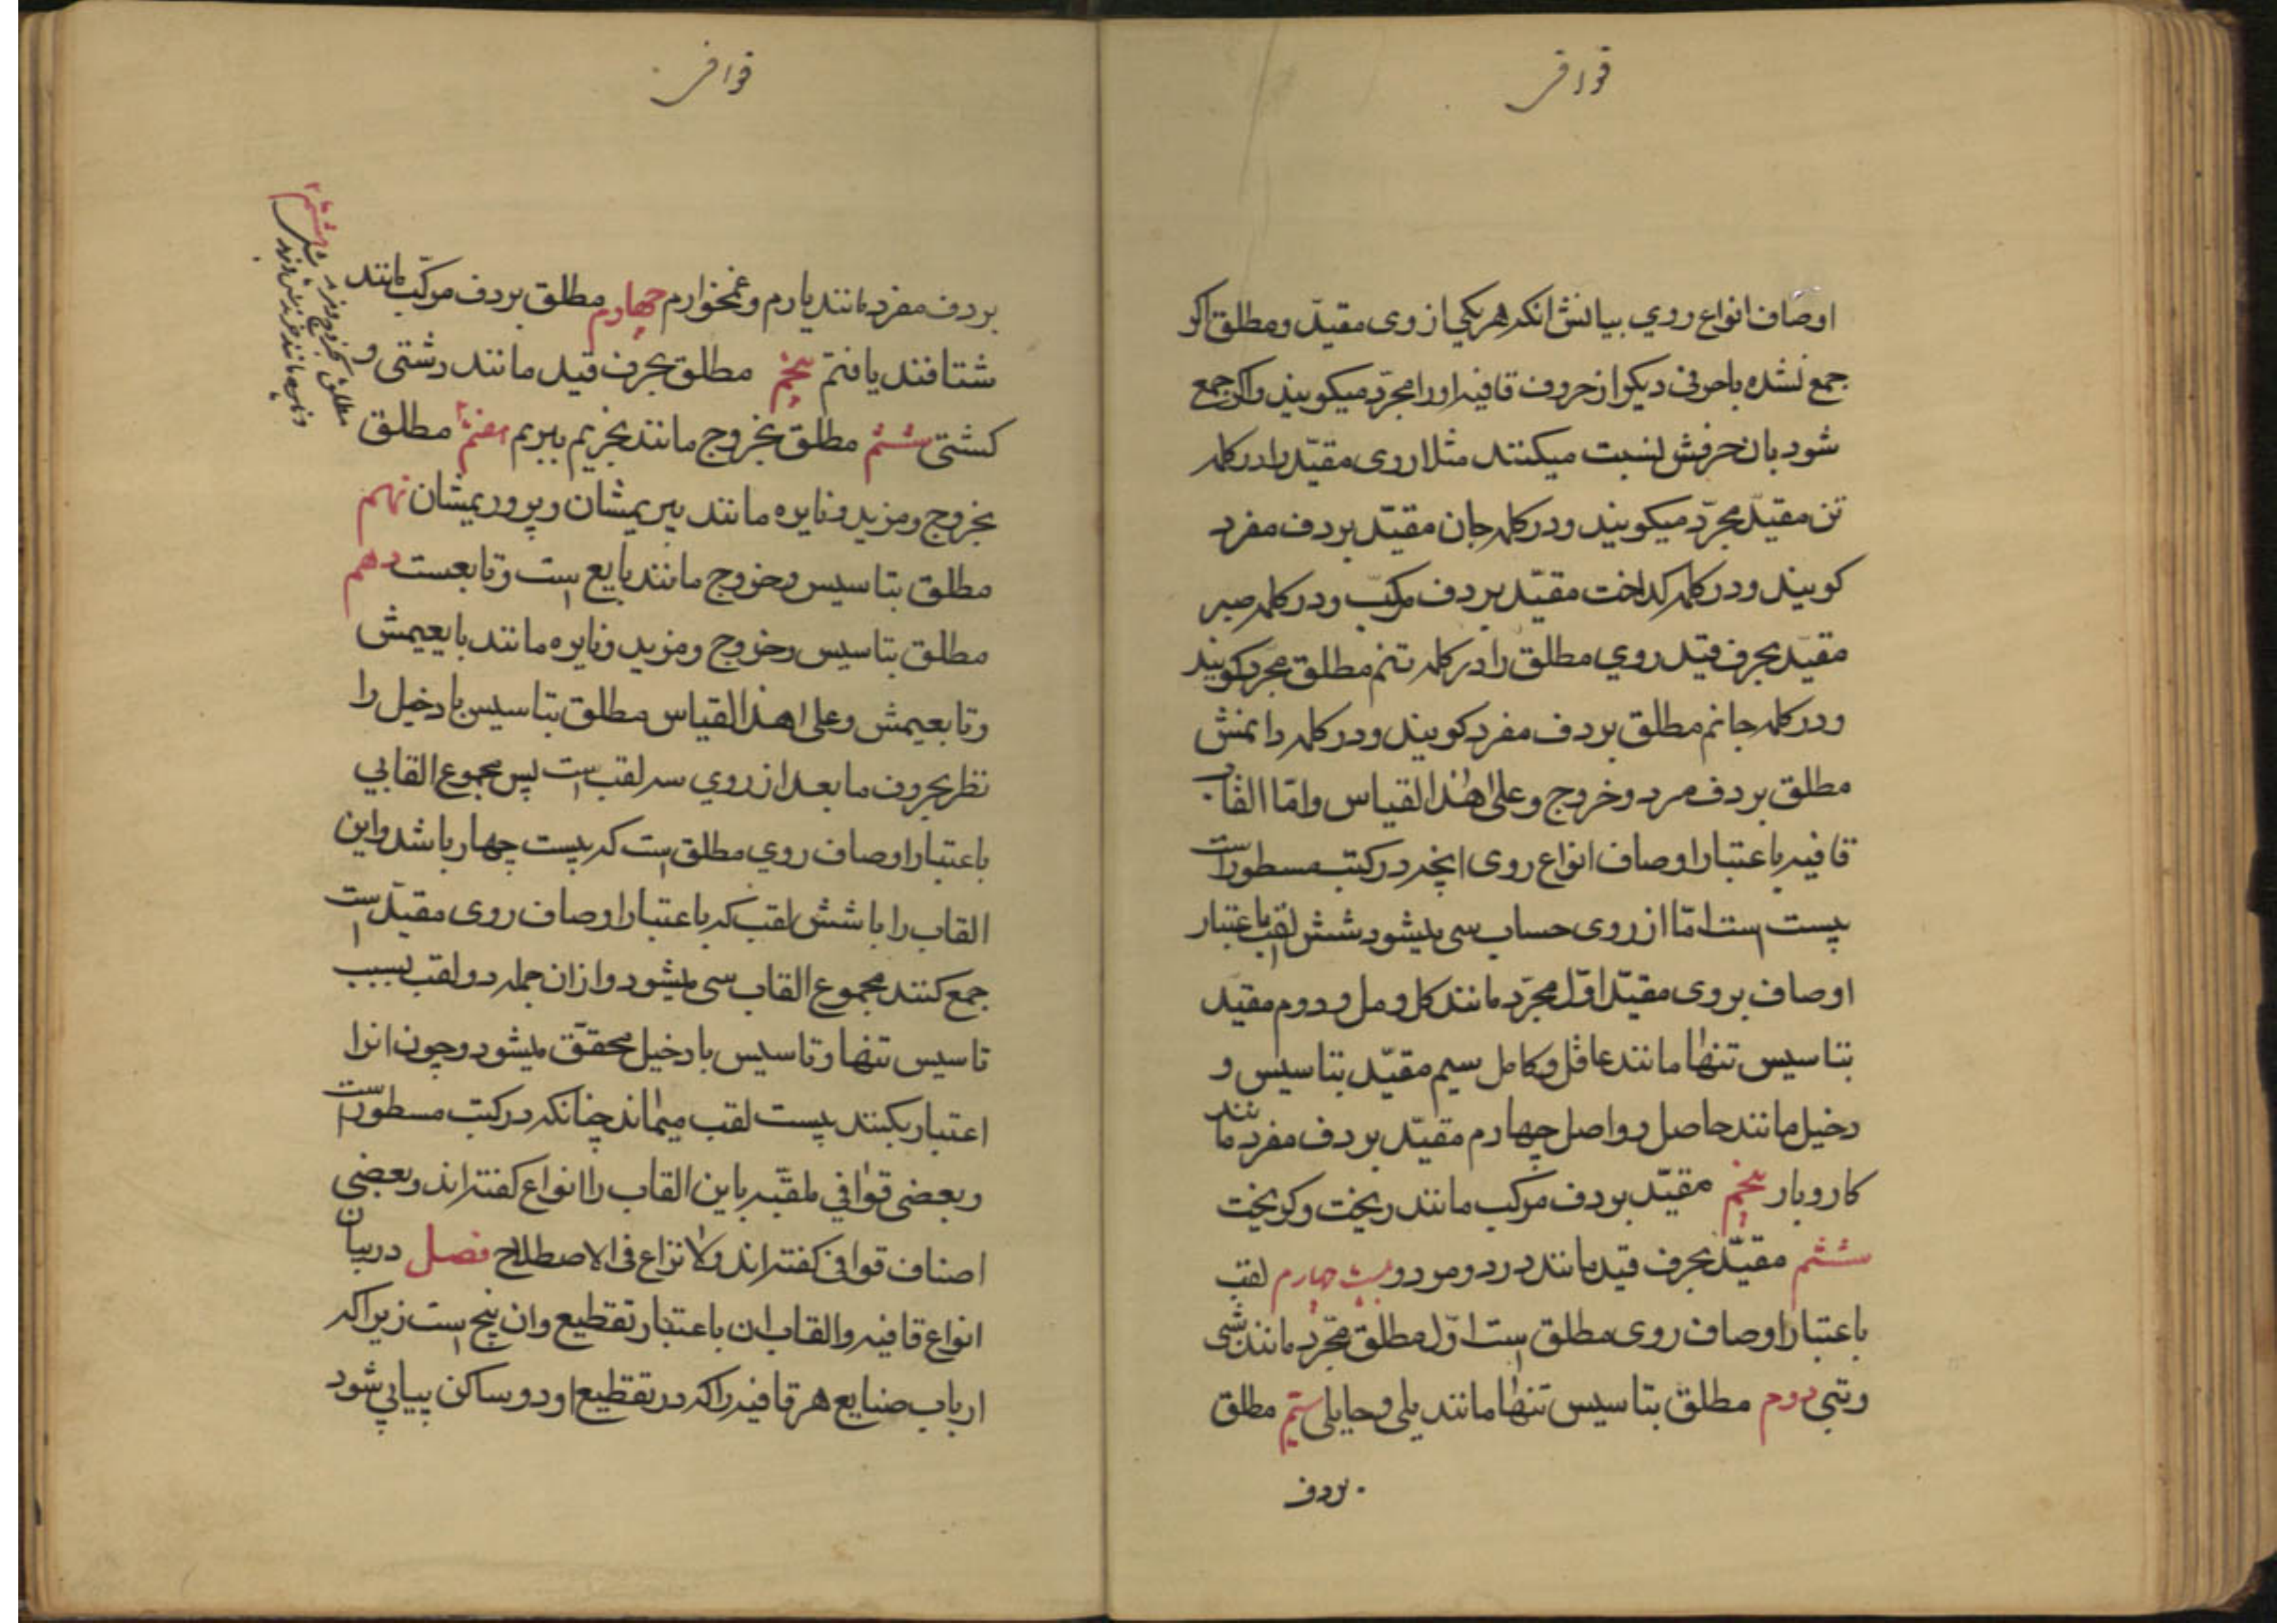 قوافی
اوصاف انواع روي بیانش انکه هر یکی از روی مقیّد و مطلق اکر
جمع نشده با حرفی دیکر از حروف قافیه اورا مجرّد میکویند و اکر جمع
شود بان حرفش نسبت میکنند مثلا روی مقیّد را در کلمه
تن مقیّد مجرّد میکویند و در کلمه جان مقیّد بردف مفرد
کویند و در کلمه کداخت مقیّد بردف مرکّب و در کلمه صبر
مقیّد بحرف قید روي مطلق را در کلمه تنم مطلق مجرّد کویند
و در کلمه جانم مطلق بردف مفرد کویند و در کلمه دانمش
مطلق بردف مرد و خروج و علی هٰذا القیاس و امّا القاب
قافیه باعتبار اوصاف انواع روی انچه در کتب مسطور است
بیست است امّا از روی حساب سی میشود شش لقب باعتبار
اوصاف بروی مقیّد اوّل مجرّد مانند کل و مل و دوم مقیّد
بتاسیس تنهٰا مانند عاقل و کامل سیم مقیّد بتاسیس و
دخیل مانند حاصل و واصل چهارم مقیّد بردف مفرد مانند
کار و بار پنجم مقیّد بردف مرکب مانند ریخت و کریخت
ششم مقیّد بحرف قید مانند درد و مرد و بیست چهارم لقب
باعتبار اوصاف روی مطلق است اوّل مطلق مجّرد مانند شبی
و تبی دوم مطلق بتاسیس تنهٰا مانند یلی و حایلی سیّم مطلق
بردف
قوافی
بردف مفرد مانند یارم و غمخوارم چهارم مطلق بردف مرکّب مانند
شتافتند یافتم پنجم مطلق بحرف قید مانند رشتی و
کشتی ششم مطلق بخروج مانند بخریم ببریم هفتم مطلق
بخروج و مزید و نایره مانند ببریمشان و پروریمشان نهم
مطلق بتاسیس و خروج مانند بایع است و تابعست دهم
مطلق بتاسیس و خروج و مزید و نایره مانند بایعیمش
و تابعیمش و علی اهذا القیاس مطلق بتاسیس با دخیل را
نظر بحروف ما بعد از روي سه لقب است پس مجموع القابي
باعتبار اوصاف روي مطلق است که بیست چهار باشد و این
القاب را با شش لقب که باعتبار اوصاف روی مقیّد است
جمع کنند مجموع القاب سی میشود و از ان جمله دو لقب بسبب
تاسیس تنها و تاسیس با دخیل محقّق میشود و چون انرا
اعتبار نکنند بیست لقب میماند چنانکه در کتب مسطور است
و بعضی قوافي ملقّبه باین القاب را انواع کفته اند و بعضی
اصناف قوافی کفته اند و لا نزاع فی الاصطلاح فصل در بیان
انواع قافیه و القاب ان باعتبار تقطیع و ان پنج است زیرا که
ارباب صنایع هر قافیه را که در تقطیع او دو ساکن پیاپي شود
هشتم
مطلق بخروج و مزید